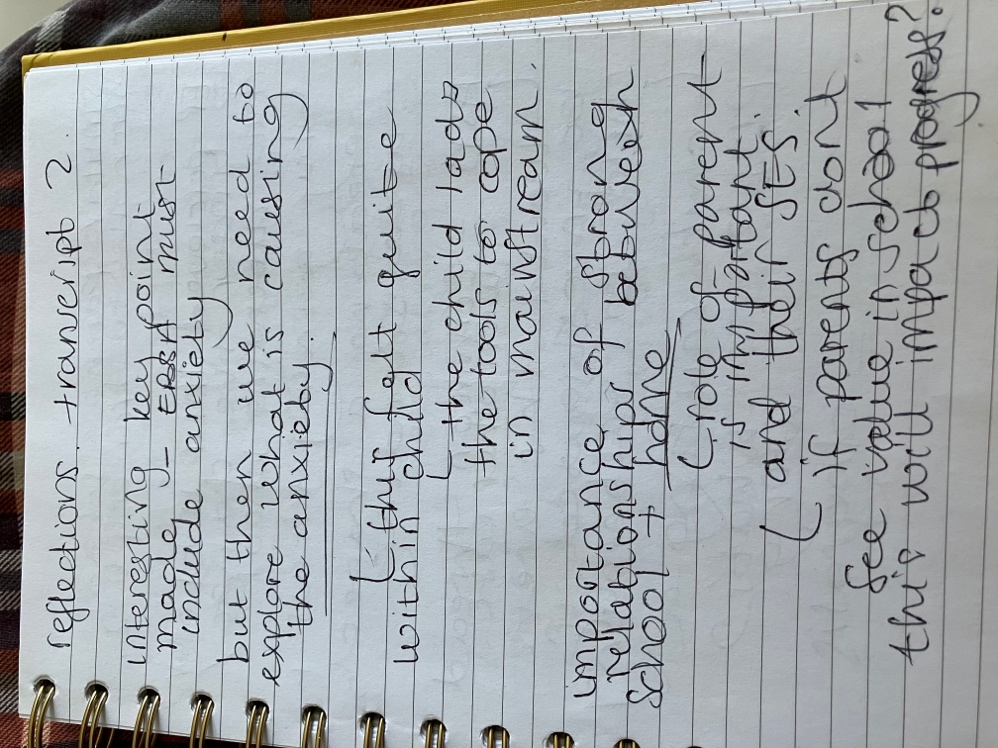 reflections. transcript 2.
interesting key point
made - EBSA must
include anxiety
but then we need to
explore what is causing
the anxiety.
↳ this felt quite
within child
↳ the child lacks
the tools to cope
in mainstream.
importance of strong
relationships between
school + home
↳ role of parent
is important.
and their SES.
↳ if parents dont
see value in school
this will impact progress?